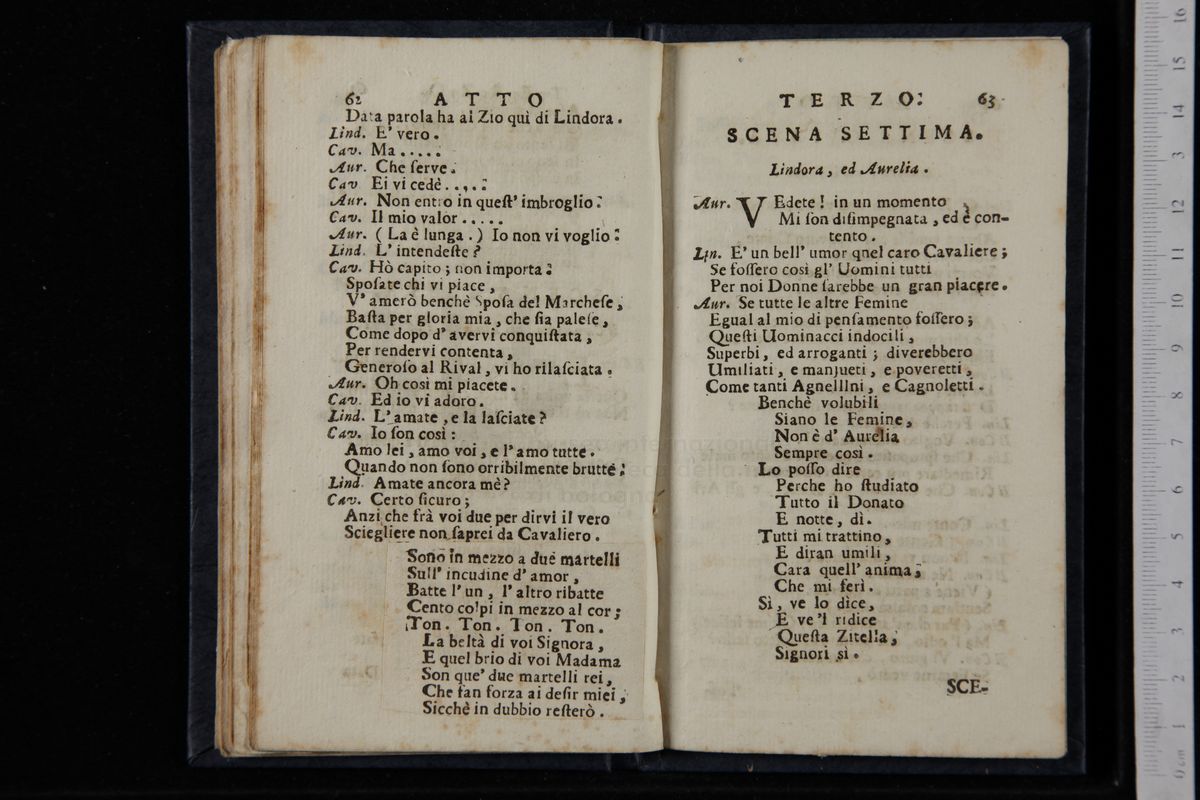 62 ATTO
Data parola ha al Zio quì di Lindora.
Lind. E' vero.
Cav. Ma.....
Aur. Che ſerve.
Cav. Ei vi cedè.....
Aur. Non entro in queſt' imbroglio.
Cav. Il mio valor.....
Aur. (La è lunga.) Io non vi voglio.
Lind. L' intendeſte?
Cav. Hò capito; non importa.
Spoſate chi vi piace,
V' amerò benchè Spoſa del Marcheſe,
Baſta per gloria mia, che ſia paleſe,
Come dopo d' avervi conquiſtata,
Per rendervi contenta,
Generoſo al Rival, vi ho rilaſciata.
Aur. Oh così mi piacete.
Cav. Ed io vi adoro.
Lind. L' amate, e la laſciate?
Cav. Io ſon così:
Amo lei, amo voi, e l' amo tutte.
Quando non ſono orribilmente brutte.
Lind. Amate ancora mè?
Cav. Certo ſicuro;
Anzi che frà voi due per dirvi il vero
Sciegliere non ſaprei da Cavaliero.
Sono in mezzo a due martelli
Sull' incudine d' amor,
Batte l' un, l' altro ribatte
Cento colpi in mezzo al cor;
Ton. Ton. Ton. Ton.
La beltà di voi Signora,
E quel brio di voi Madama
Son que' due martelli rei,
Che fan forza ai deſir miei,
Sicchè in dubbio reſterò.
TERZO. 63
SCENA SETTIMA.
Lindora, ed Aurelia.
Aur. VEdete! in un momento
Mi ſon diſimpegnata, ed è con-
tento.
Lin. E' un bell' umor qnel caro Cavaliere;
Se foſſero così gl' Uomini tutti
Per noi Donne ſarebbe un gran piacere.
Aur. Se tutte le altre Femine
Egual al mio di penſamento foſſero;
Queſti Uominacci indocili,
Superbi, ed arroganti; diverebbero
Umiliati, e manjueti, e poveretti,
Come tanti Agnelllni, e Cagnoletti.
Benchè volubili
Siano le Femine,
Non è d' Aurelia
Sempre così.
Lo poſſo dire
Perche ho ſtudiato
Tutto il Donato
E notte, dì.
Tutti mi trattino,
E diran umili,
Cara quell' anima;
Che mi ferì.
Sì, ve lo dice,
E ve 'l ridice
Queſta Zitella,
Signori sì.
SCE-